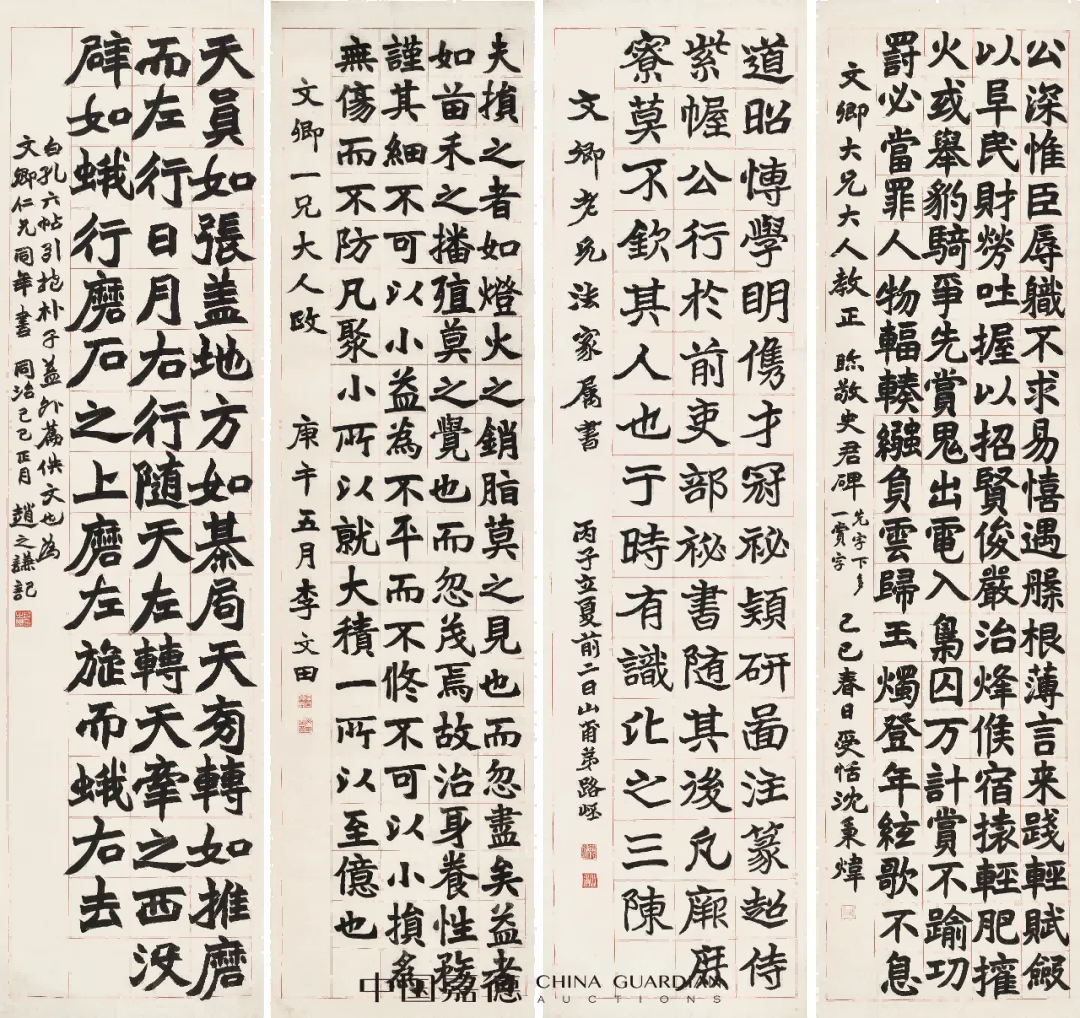 公深惟臣辱職不求易憘遇滕根薄言来踐輕賦斂
以阜民財勞吐握以招賢俊嚴治烽候宿掾輕肥擁
火或舉豹騎爭先賞鬼出電入梟囚万計賞不踰功
罰必當罪人物輻輳繈負雲歸玉燭登年絃歌不息
文卿大兄大人教正 臨敬史君碑 先字下多一賞字 己巳春日受恬沈秉煒
道昭博學明儁才冠祕穎研啚注篆超侍
紫幄公行於前吏部祕書随其後凡廊庶
寮莫不欽其人也于時有識比之三陳
文卿老兄法家屬書 丙子立夏前二日山甫弟路岯
夫損之者如燈火之銷脂莫之見也而忽盡矣益者
如苗禾之播殖莫之覺也而忽茂焉故治身養性務
謹其細不可以小益為不平而不修不可以小損為
無傷而不防凡聚小所以就大積一所以至億也
文卿一兄大人政 庚午五月李文田
天員如張盖地方如棊局天旁轉如推磨
而左行日月右行随天左轉天牽之西没
辟如蛾行磨石之上磨左旋而蛾右去
白孔六帖引抱朴子益外篇佚文也為
文卿仁兄同年書 同治己巳正月趙之謙記
中国嘉德 CHINA GUARDIAN
AUCTIONS